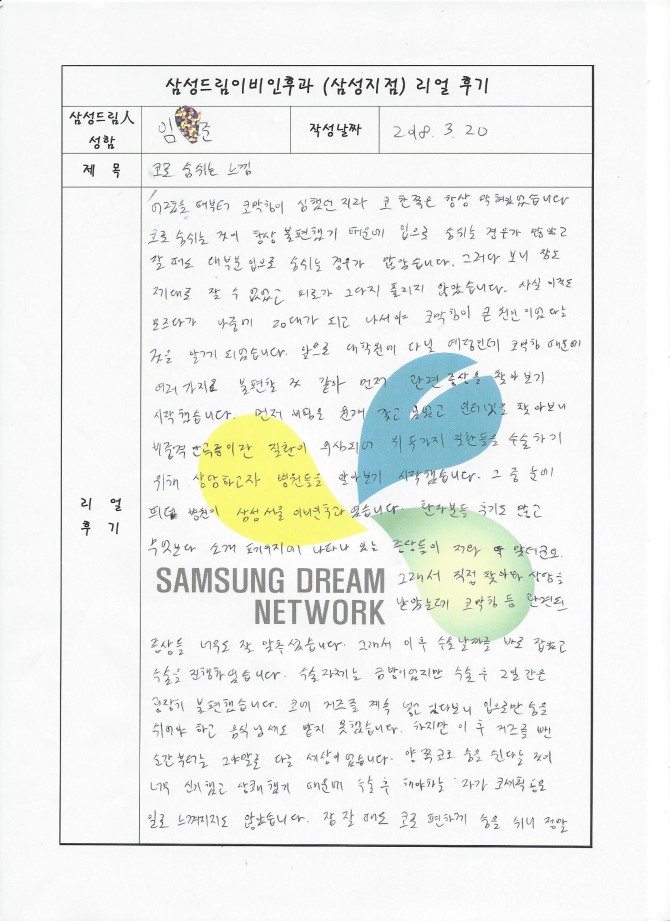 삼성드림이비인후과 (삼성지점) 리얼 후기
삼성드림人 성함
임 준
작성날짜
2018. 3. 20
제 목
코로 숨쉬는 느낌
리 얼
후 기
어렸을 때부터 코막힘이 심했던 지라 코 한쪽은 항상 막혀있었습니다
코로 숨쉬는 것이 항상 불편했기 때문에 입으로 숨쉬는 경우가 많았고
잘 때도 대부분 입으로 숨쉬는 경우가 많았습니다. 그러다 보니 잠도
제대로 잘 수 없었고 피로가 그다지 풀리지 않았습니다. 사실 이것도
모르다가 나중에 20대가 되고 나서야 코막힘이 큰 원인이었다는
것을 알게 되었습니다. 앞으로 대학원에 다닐 예정인데 코막힘 때문에
여러가지로 불편할 것 같아 먼저 관련 증상을 찾아보기
시작했습니다. 먼저 비염을 갖고 있었고 인터넷으로 찾아보니
비중격 만곡증이란 질환이 의심되어 이 두가지 질환들을 수술하기
위해 상담하고자 병원들을 알아보기 시작했습니다. 그 중 눈에
띄던 병원이 삼성서울이비인후과였습니다. 환자분들 후기도 많고
무엇보다 소개 페이지에 나타나 있는 증상들이 저와 딱 맞더군요.
SAMSUNG DREAM
NETWORK
그래서 직접 찾아와 상담을
받았는데 코막힘 등 관련된
증상들 너무도 잘 맞추셨습니다. 그래서 이후 수술날짜를 바로 잡았고
수술을 진행하였습니다. 수술자체는 금방이었지만 수술 후 2일간은
굉장히 불편했습니다. 코에 거즈를 계속 넣고 있다보니 입으로만 숨을
쉬어야 하고 음식냄새도 맡지 못했습니다. 하지만 이 후 거즈를 뺀
순간부터는 그야말로 다른 세상이었습니다. 양쪽코로 숨을 쉰다는 것이
너무 신기했고 상쾌했기 때문에 수술 후 해야하는 자가 코세척 등도
일로 느껴지지도 않았습니다. 잠 잘 때도 코로 편하게 숨을 쉬니 정말